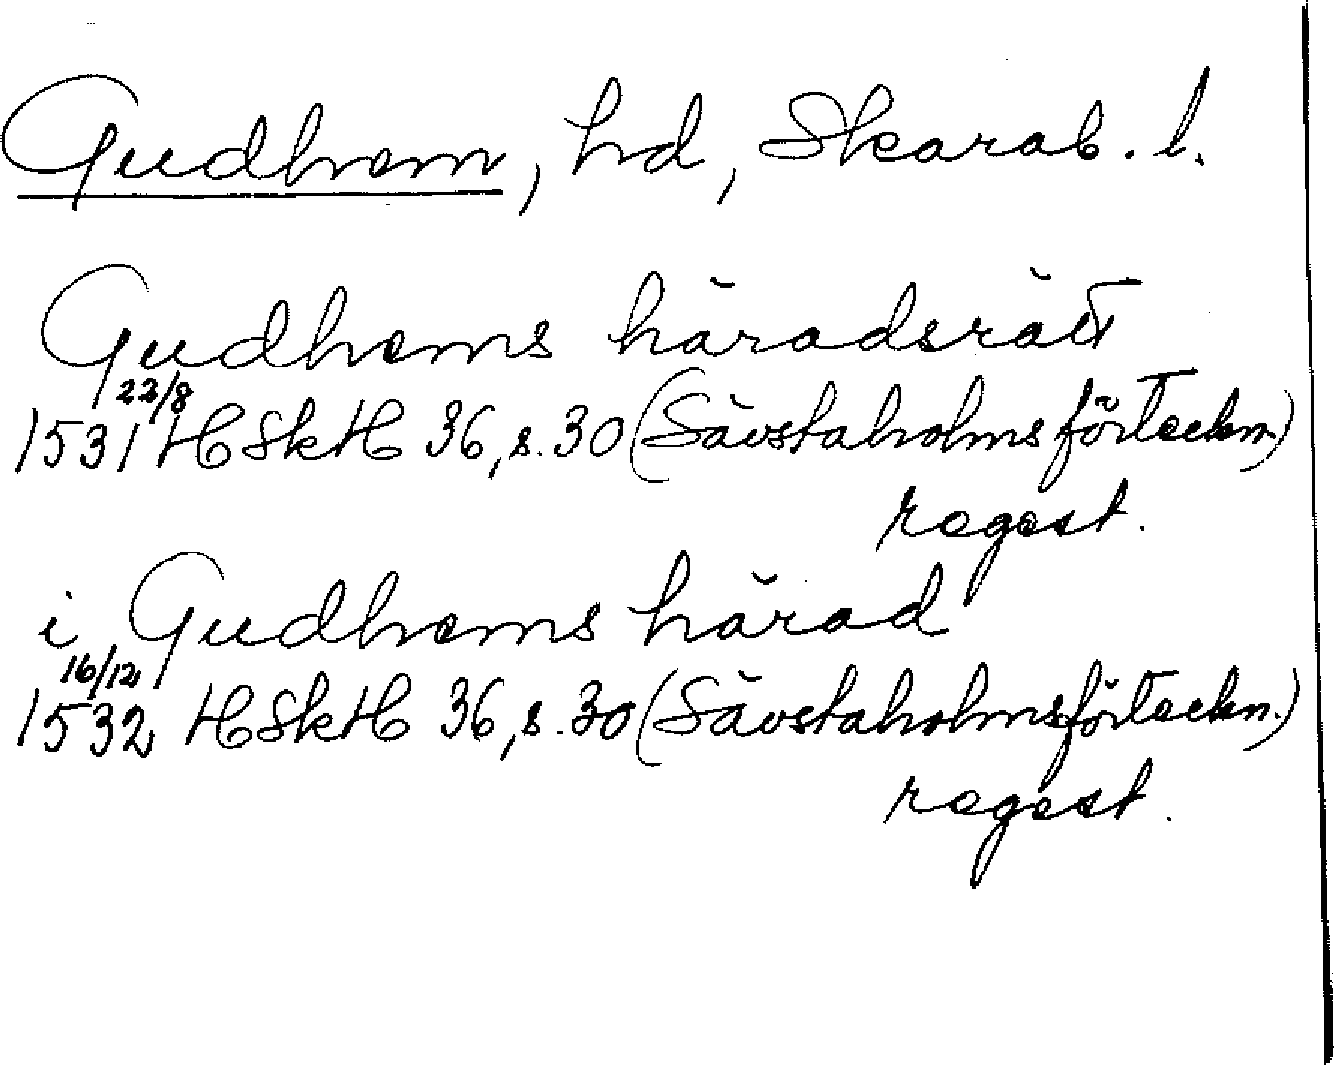 Gudhem, hd, Skarab. l.
Gudhems häradsrätt
22/8
1531 HSkH 36, s. 30 (Sävstaholmsförteckn.)
regest.
i Gudhems härad
16/12
1532 HSkH 36, s. 30 (Sävstaholmsförteckn.)
regest.